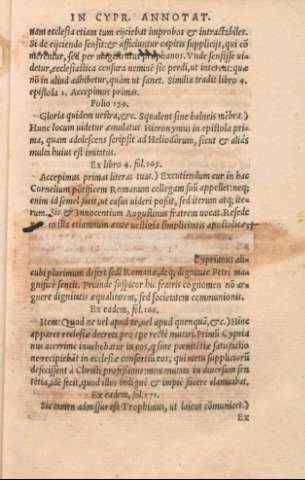 IN CYPR. ANNOTAT.
nam ecclesia etiam tum eijciebat improbos & intractabiles.
Si de eijciendo sensit: & afficiuntur capitis supplicijs, qui cō
merentur, sed per magistratus prophanos. Vnde sensisse ui-
detur, ecclesiastica censura neminē sic perdi, ut intereat: quæ
nō in aliud adhibetur, quàm ut sanet. Similia tradit libro 4.
epistola 2. Accepimus primas.
Folio 139.
Gloria quidem uestra, &c. Squalent sine balneis mēbra.)
Hunc locum uidetur æmulatus Hieronymus in epistola pri-
ma, quam adolescens scripsit ad Heliodorum, sicut & aliâs
multis huius est imitatus.
Ex libro 4. fol. 165.
Accepimus primas literas tuas.) Excutiendum eur in hac
Cornelium pōtificem Romanum collegam suū appellet: neq;
enim id semel facit, ut casus uideri possit, sed iterum atq; ite-
rum. Sic & Innocentium Augustinus fratrem uocat. Resede
in illa etiamnum ætate uestigia simplicitatis apostolicæ,
Cyprianus ali-
cubi plurimum defert sedi Romanæ, deq; dignitate Petri ma
gnificè sentit. Proinde suspicor hic fratris cognomen nō ar-
guere dignitatis æqualitatem, sed societatem communionis.
Ex eadem, fol. 166.
Item: Quod ne uel apud te, uel apud quenquā, &c.) Hinc
apparet ecclesiæ decreta pro tēpore rectè mutari. Priusq; Cypria
nus acerrimè inuehebatur in eos, q̃ sine pœnitētiæ satisfactio
ne recipiebāt in ecclesiæ consortiū eos, qui metu suppliciorū
defecissent à Christi professione: mox mutata in diuersum sen
tētia, idē fecit, quod illos indignè & impiè facere clamitabat.
Ex eadem, fol. 171.
Sic tamen admissus est Trophimus, ut laicus cōmunicet.)
Ex